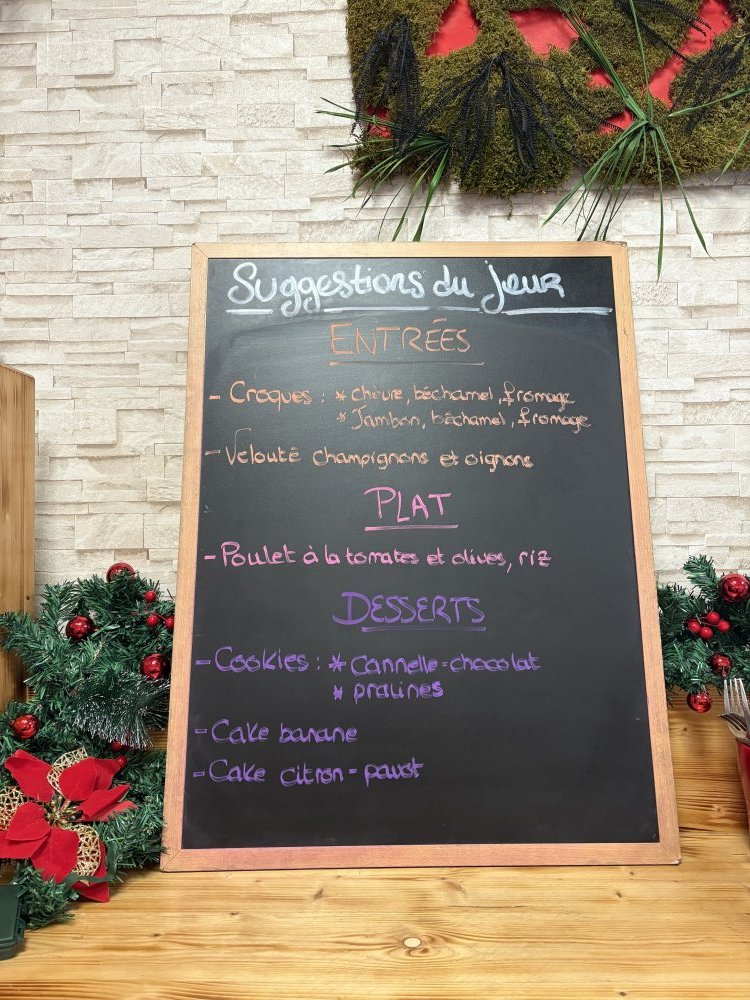 Suggestions du jour
ENTRÉES
- Croques : * chèvre, béchamel, fromage
* Jambon, béchamel, fromage
- Velouté champignons et oignons
PLAT
- Poulet à la tomates et olives, riz
DESSERTS
- Cookies : * cannelle-chocolat
* pralines
- Cake banane
- Cake citron-pavot